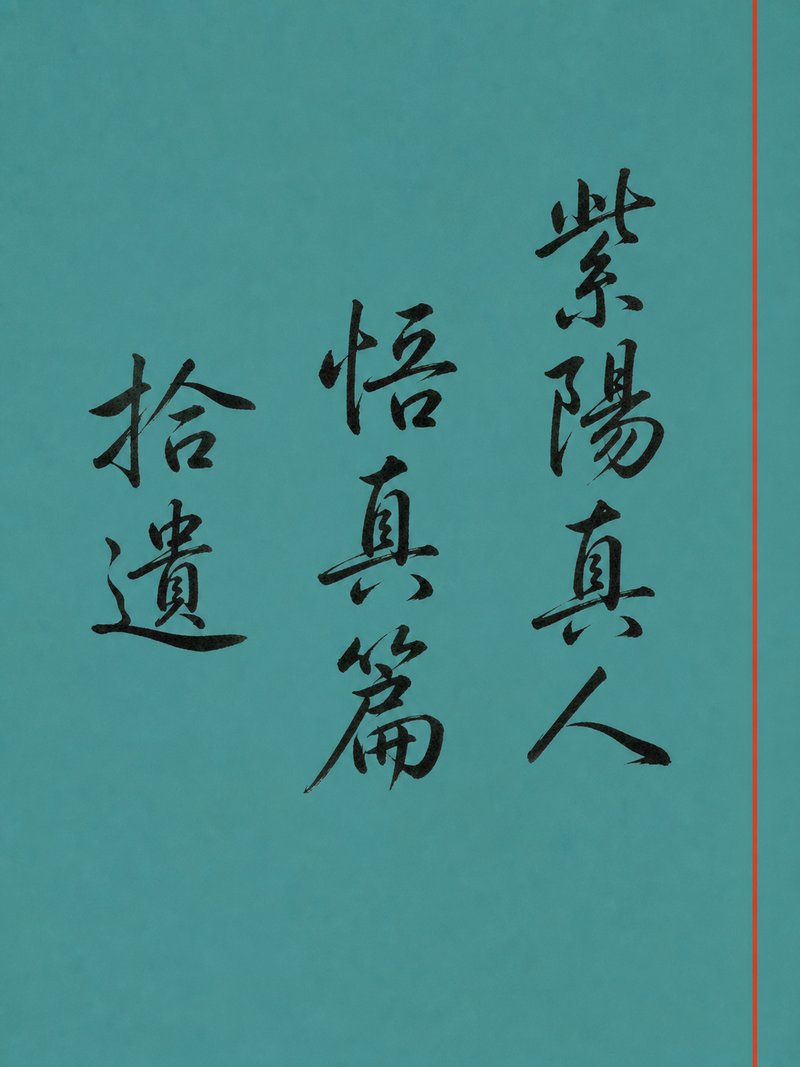 紫陽真人
悟真篇
拾遺